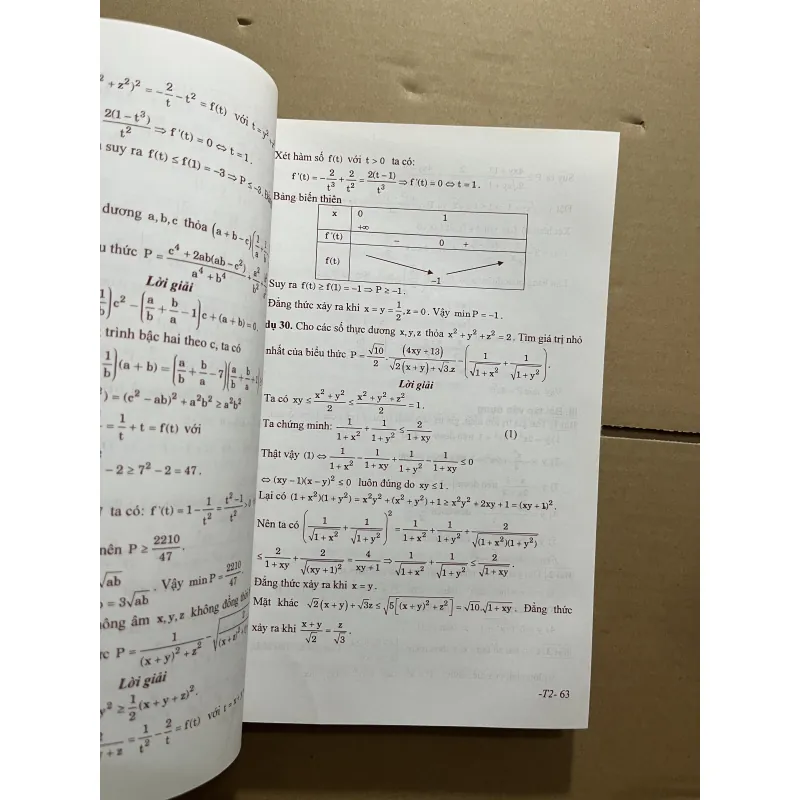 ² + z²)² = -2/t - t² = f(t) với
2(1 - t³)/t² ⇒ f'(t) = 0 ⇔ t = 1.
suy ra f(t) ≤ f(1) = -3 ⇒ P ≤ -3.
dương a, b, c thỏa (a + b - c)
thức P = (c⁴ + 2ab(ab - c²))/(a⁴ + b⁴)
Lời giải
c² - (a/b + b/a - 1)c + (a + b) = 0.
trình bậc hai theo c, ta có
(a + b) = (a/b + b/a - 7)
²) = (c² - ab)² + a²b² ≥ a²b²
= 1/t + t = f(t) với
- 2 ≥ 7² - 2 = 47.
ta có: f'(t) = 1 - 1/t² = (t² - 1)/t²
nên P ≥ 2210/47.
√ab. Vậy min P = 2210/47.
= 3√ab
âm x, y, z không đồng thời
P = 1/((x + y)² + z²) -
Lời giải
y² ≥ 1/2(x + y + z)².
= 1/t² - 2/t = f(t) với
Xét hàm số f(t) với t > 0 ta có:
f'(t) = -2/t³ + 2/t² = 2(t - 1)/t³ ⇒ f'(t) = 0 ⇔ t = 1.
Bảng biến thiên
x 0 1
+∞
f'(t) - 0 +
f(t)
-1
Suy ra f(t) ≥ f(1) = -1 ⇒ P ≥ -1.
Đẳng thức xảy ra khi x = y = 1/2, z = 0. Vậy min P = -1.
dụ 30. Cho các số thực dương x, y, z thỏa x² + y² + z² = 2. Tìm giá trị nhỏ
nhất của biểu thức P = √10/2 · (4xy + 13)/(√2(x + y) + √3.z) - (1/√(1 + x²) + 1/√(1 + y²)).
Lời giải
Ta có xy ≤ (x² + y²)/2 ≤ (x² + y² + z²)/2 = 1.
Ta chứng minh: 1/(1 + x²) + 1/(1 + y²) ≤ 2/(1 + xy) (1)
Thật vậy (1) ⇔ 1/(1 + x²) - 1/(1 + xy) + 1/(1 + y²) - 1/(1 + xy) ≤ 0
⇔ (xy - 1)(x - y)² ≤ 0 luôn đúng do xy ≤ 1.
Lại có (1 + x²)(1 + y²) = x²y² + (x² + y²) + 1 ≥ x²y² + 2xy + 1 = (xy + 1)².
Nên ta có (1/√(1 + x²) + 1/√(1 + y²))² = 1/(1 + x²) + 1/(1 + y²) + 2/√((1 + x²)(1 + y²))
≤ 2/(1 + xy) + 2/√((xy + 1)²) = 4/(xy + 1) ⇒ 1/√(1 + x²) + 1/√(1 + y²) ≤ 2/√(1 + xy).
Đẳng thức xảy ra khi x = y.
Mặt khác √2(x + y) + √3z ≤ √(5[(x + y)² + z²]) = √10.√(1 + xy). Đẳng thức
xảy ra khi (x + y)/√2 = z/√3.
-T2- 63